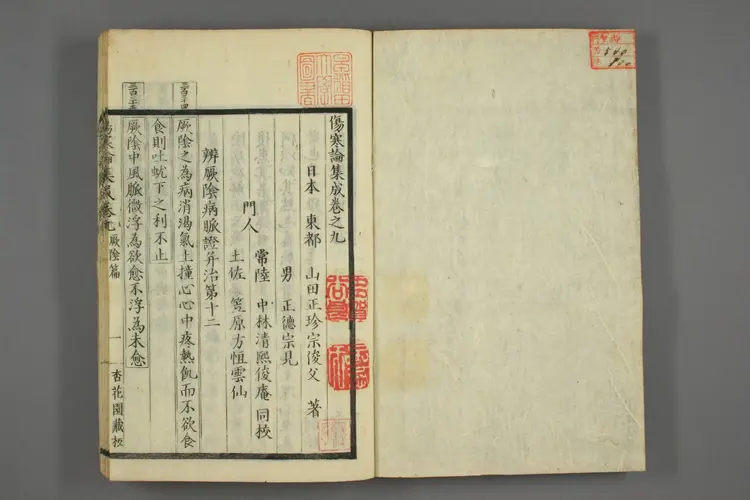 傷寒論集成卷之九
日本 東都 山田正珍宗俊父 著
男 正德宗見
門人
常陸 中林清熙俊庵 同校
土佐 笠原方恒雲仙
辨厥陰病脈證并治第十二
三百三十四
厥陰之為病消渴氣上撞心心中疼熱飢而不欲食
食則吐蚘下之利不止
厥陰中風脈微浮為欲愈不浮為未愈
傷寒論集成卷九 厥陰篇 一 杏花園藏板